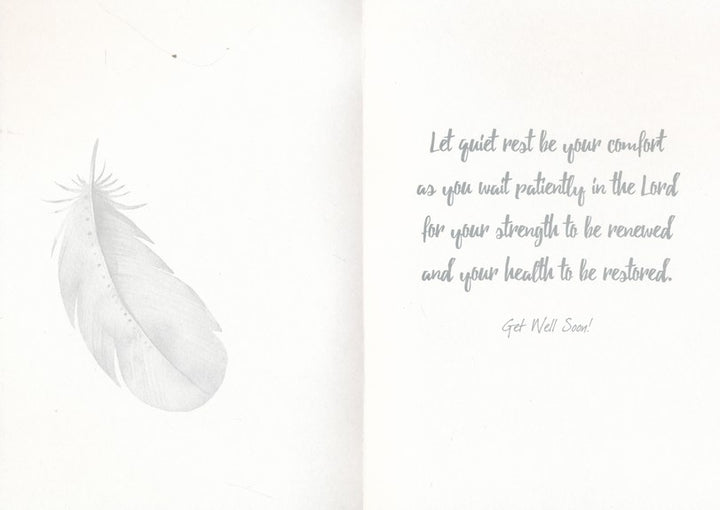 Let quiet rest be your comfort
as you wait patiently in the Lord
for your strength to be renewed
and your health to be restored.
Get Well Soon!